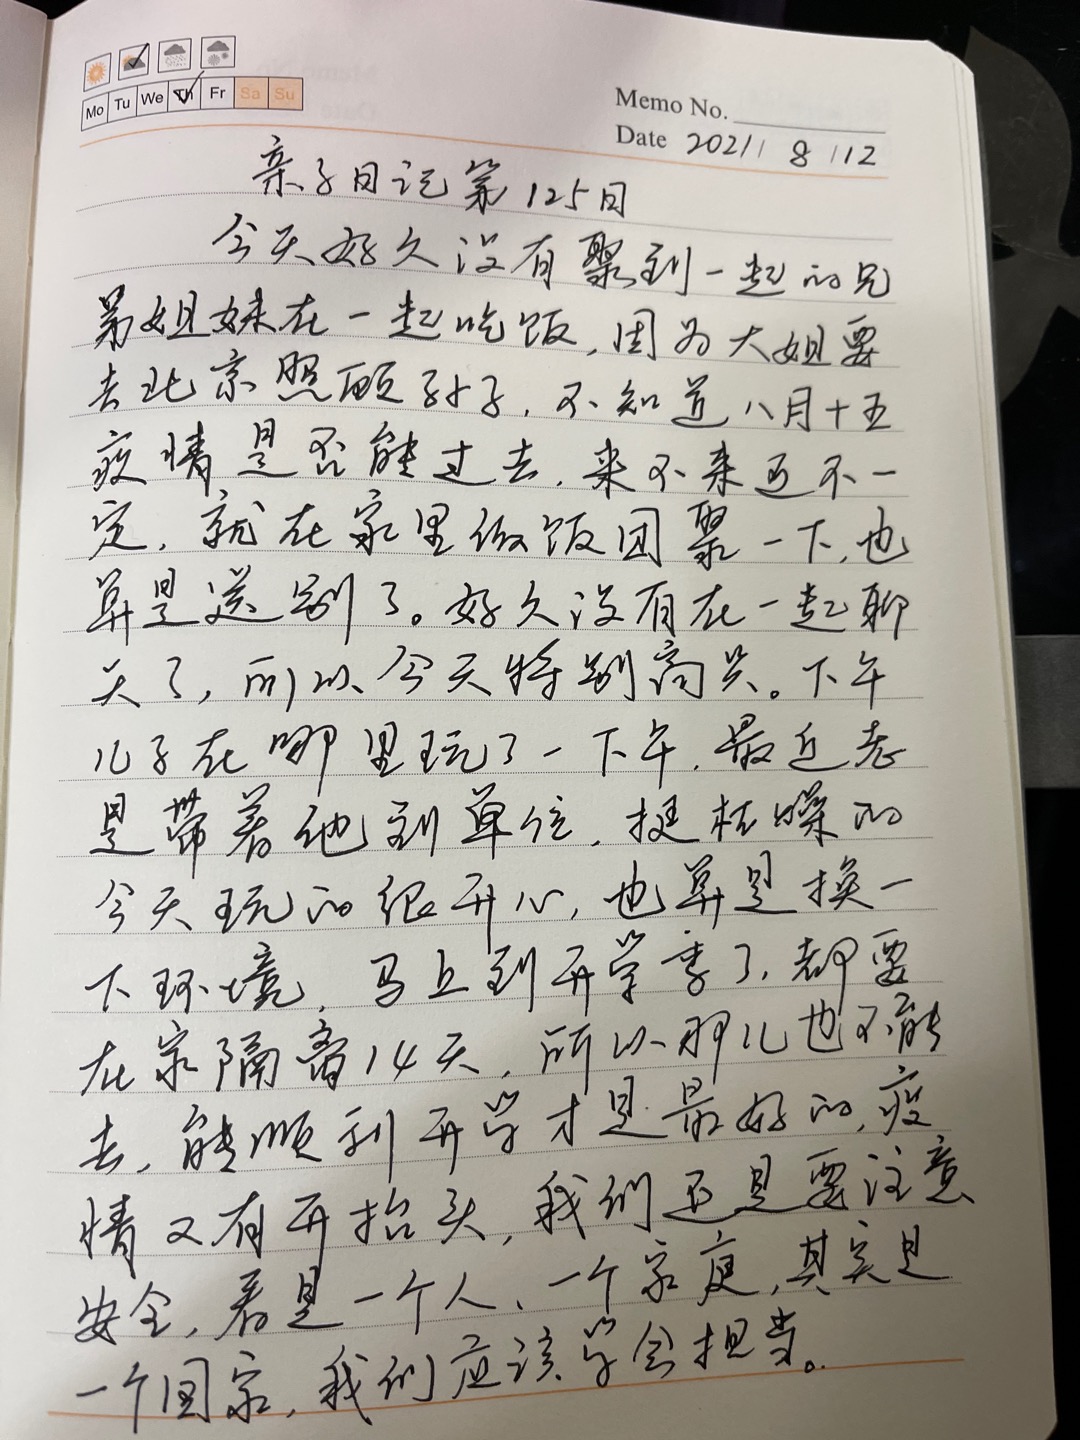 Mo Tu We Th Fr Sa Su
Memo No.
Date 2021/ 8 /12
亲子日记第125日
今天好久没有聚到一起的兄
弟姐妹在一起吃饭,因为大姐要
去北京照顾孙子,不知道八月十五
疫情是否能过去,来不来还不一
定,就在家里做饭团聚一下,也
算是送别了。好久没有在一起聊
天了,所以今天特别高兴。下午
儿子在哪里玩了一下午,最近老
是带着他到单位,挺枯噪的
今天玩的很开心,也算是换一
下环境,马上到开学季了,都要
在家隔离14天,所以那儿也不能
去,能顺利开学才是最好的,疫
情又有开抬头,我们还是要注意
安全,看是一个人、一个家庭,其实是
一个国家,我们应该学会担当。